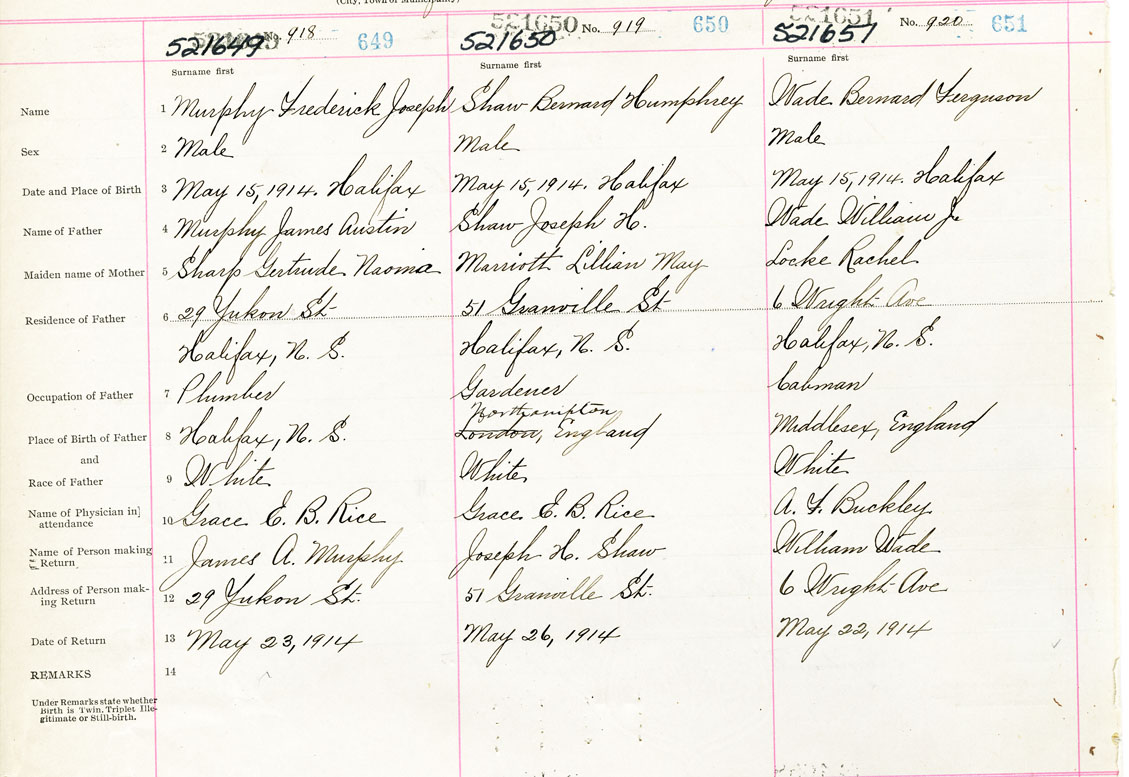 (City, Town or Municipality)
521649 No. 918 649
521650 521650 No. 919 650
521651 521651 No. 920 651
Surname first Surname first Surname first
Name 1 Murphy Frederick Joseph Shaw Bernard Humphrey Wade Bernard Ferguson
Sex 2 Male Male Male
Date and Place of Birth 3 May 15, 1914. Halifax May 15, 1914. Halifax May 15, 1914. Halifax
Name of Father 4 Murphy James Austin Shaw Joseph H. Wade William Jr
Maiden name of Mother 5 Sharp Gertrude Naomia Marriott Lillian May Locke Rachel
Residence of Father 6 29 Yukon St 51 Granville St 6 Wright Ave
Halifax, N. S. Halifax, N. S. Halifax, N. S.
Occupation of Father 7 Plumber Gardener Cabman
Northampton
Place of Birth of Father 8 Halifax, N. S. London, England Middlesex, England
and
Race of Father 9 White White White
Name of Physician in] attendance 10 Grace E. B. Rice Grace E. B. Rice A. F. Buckley
Name of Person making Return 11 James A. Murphy Joseph H. Shaw William Wade
Address of Person mak-
ing Return 12 29 Yukon St. 51 Granville St. 6 Wright Ave
Date of Return 13 May 23, 1914 May 26, 1914 May 22, 1914
REMARKS 14
Under Remarks state whether
Birth is Twin, Triplet Ille-
gitimate or Still-birth.